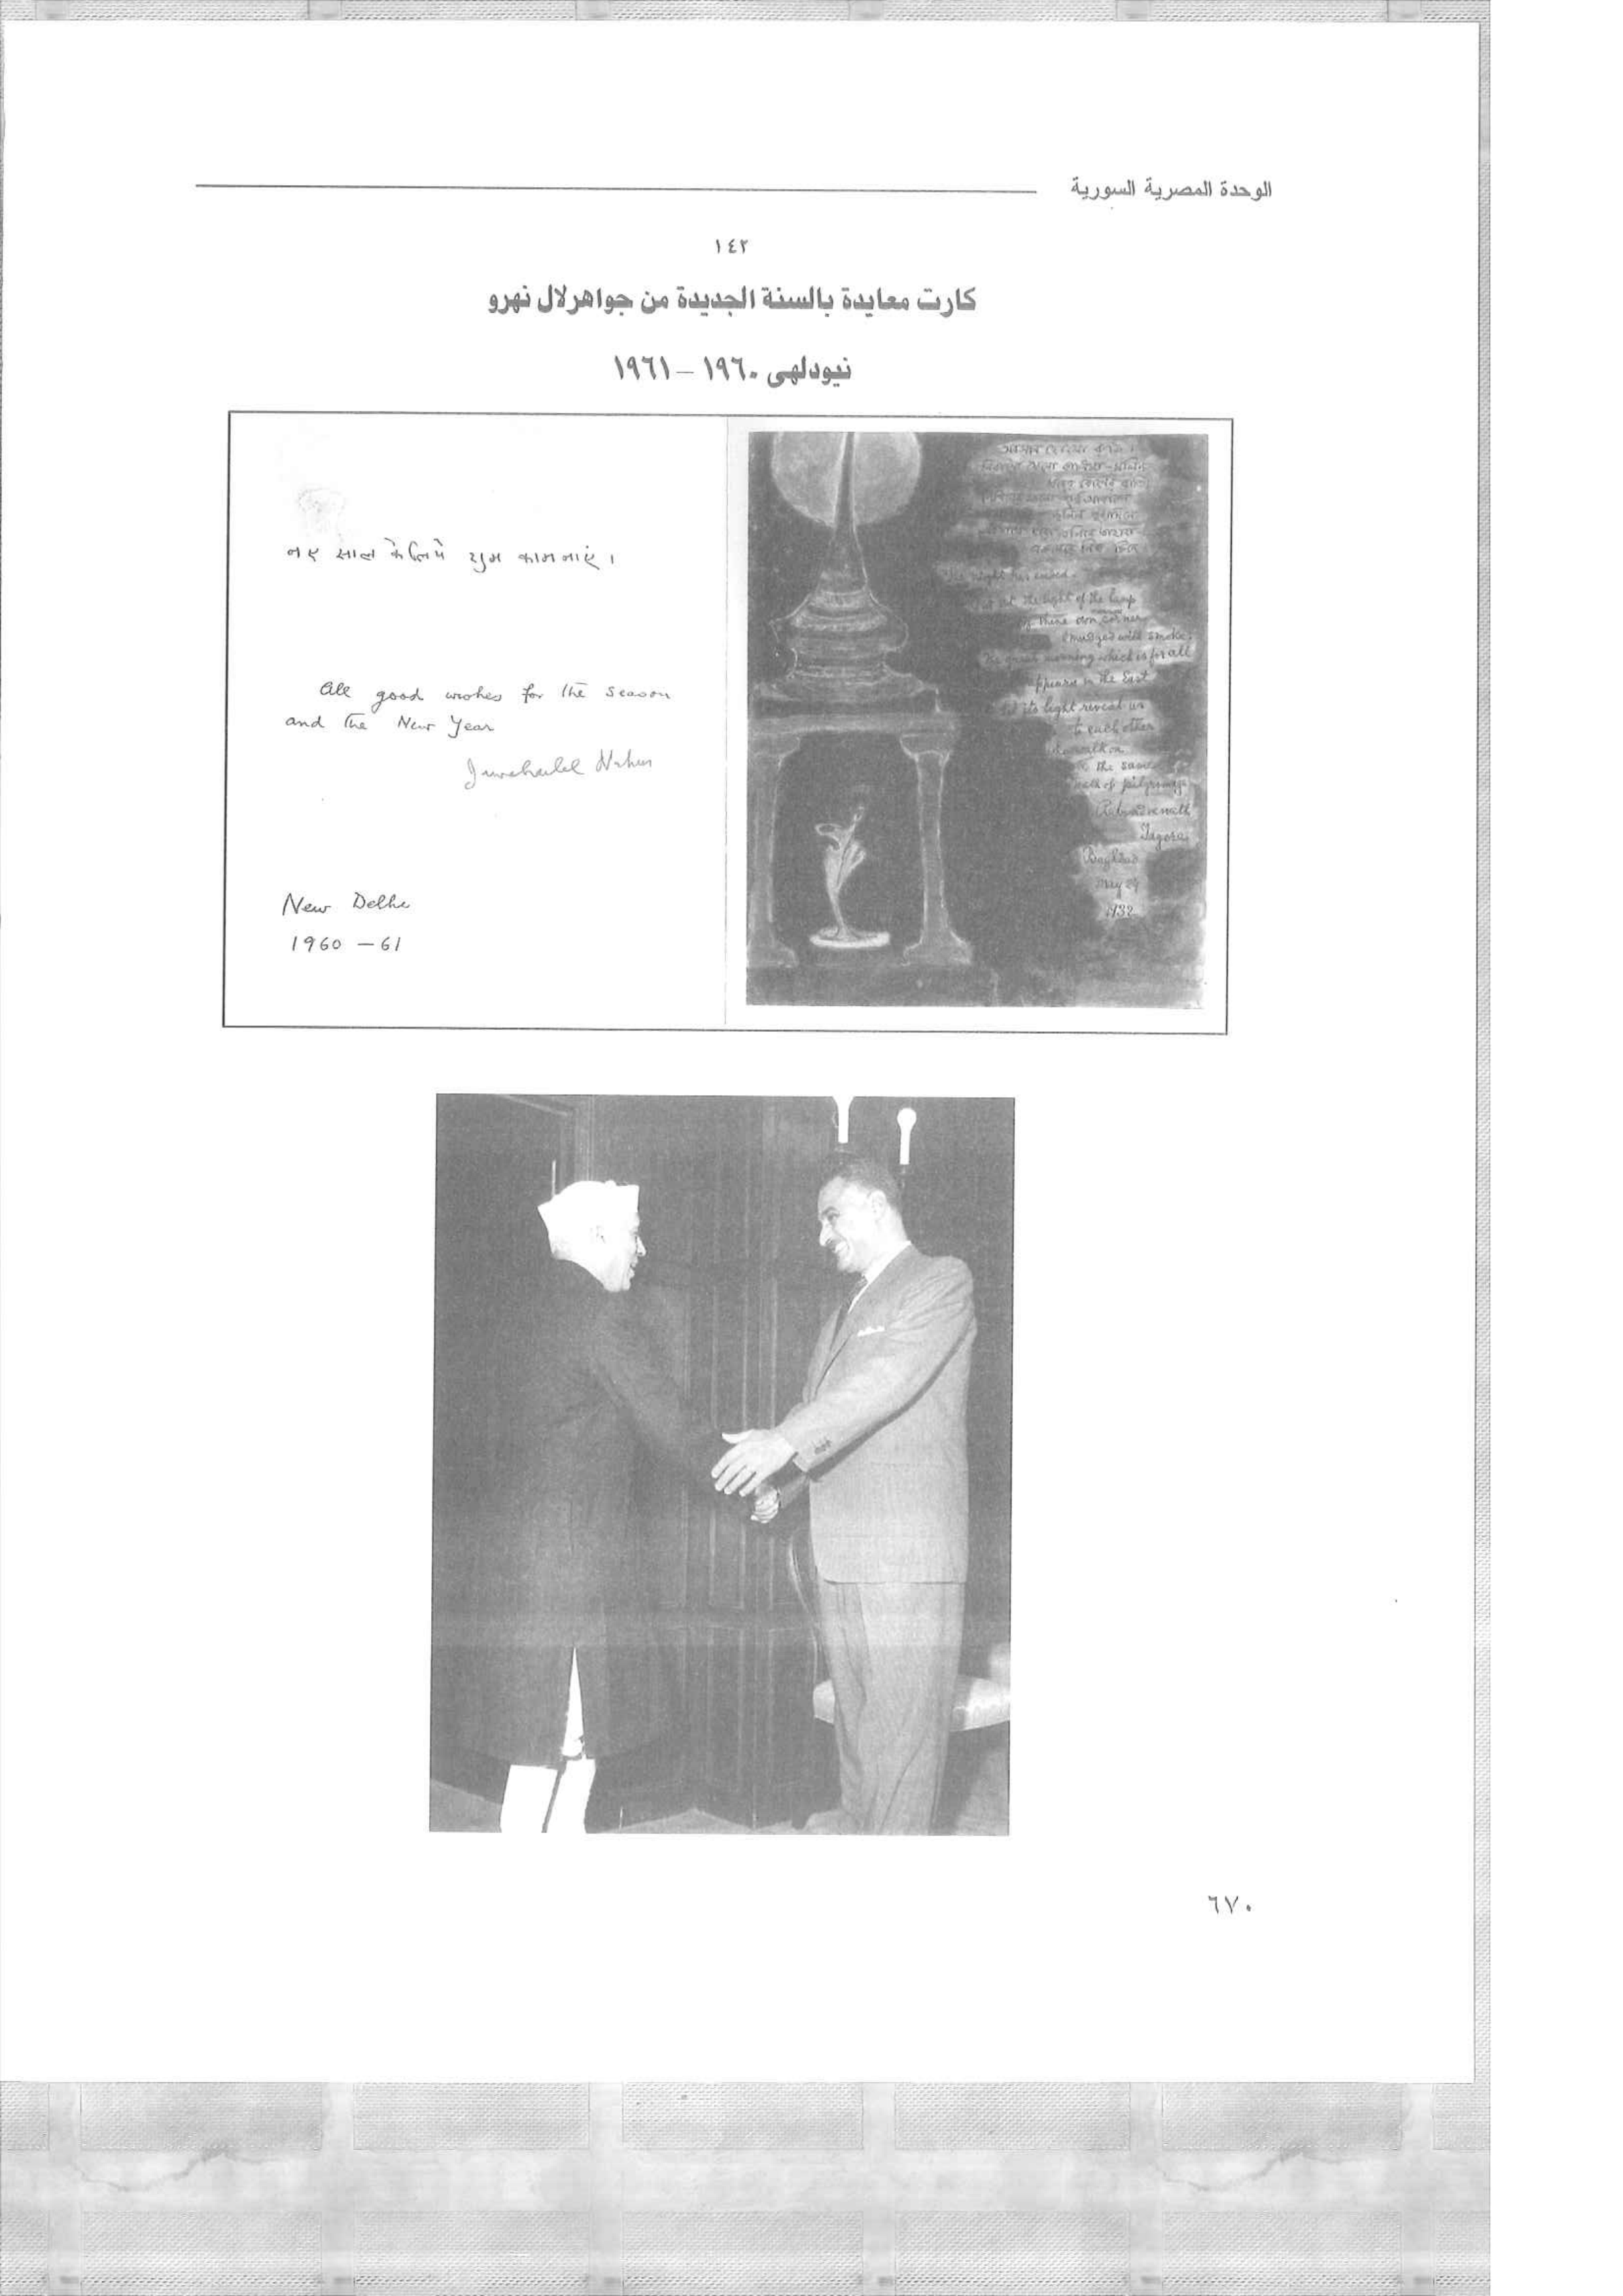 الوحدة المصرية السورية
١٤٢
كارت معايدة بالسنة الجديدة من جواهرلال نهرو
نيودلهى ١٩٦٠ – ١٩٦١
नए साल के लिये शुभ कामनाएं ।
All good wishes for the season
and the New Year
Jawaharlal Nehru
New Delhi
1960 – 61
night has ended.
out the light of the lamp
thine own corner
smudged with smoke.
great morning which is for all
appears in the East
its light reveal us
to each other
who walk on
the same
path of pilgrimage
Rabindranath
Tagore
Baghdad
May 24
1932
٦٧٠